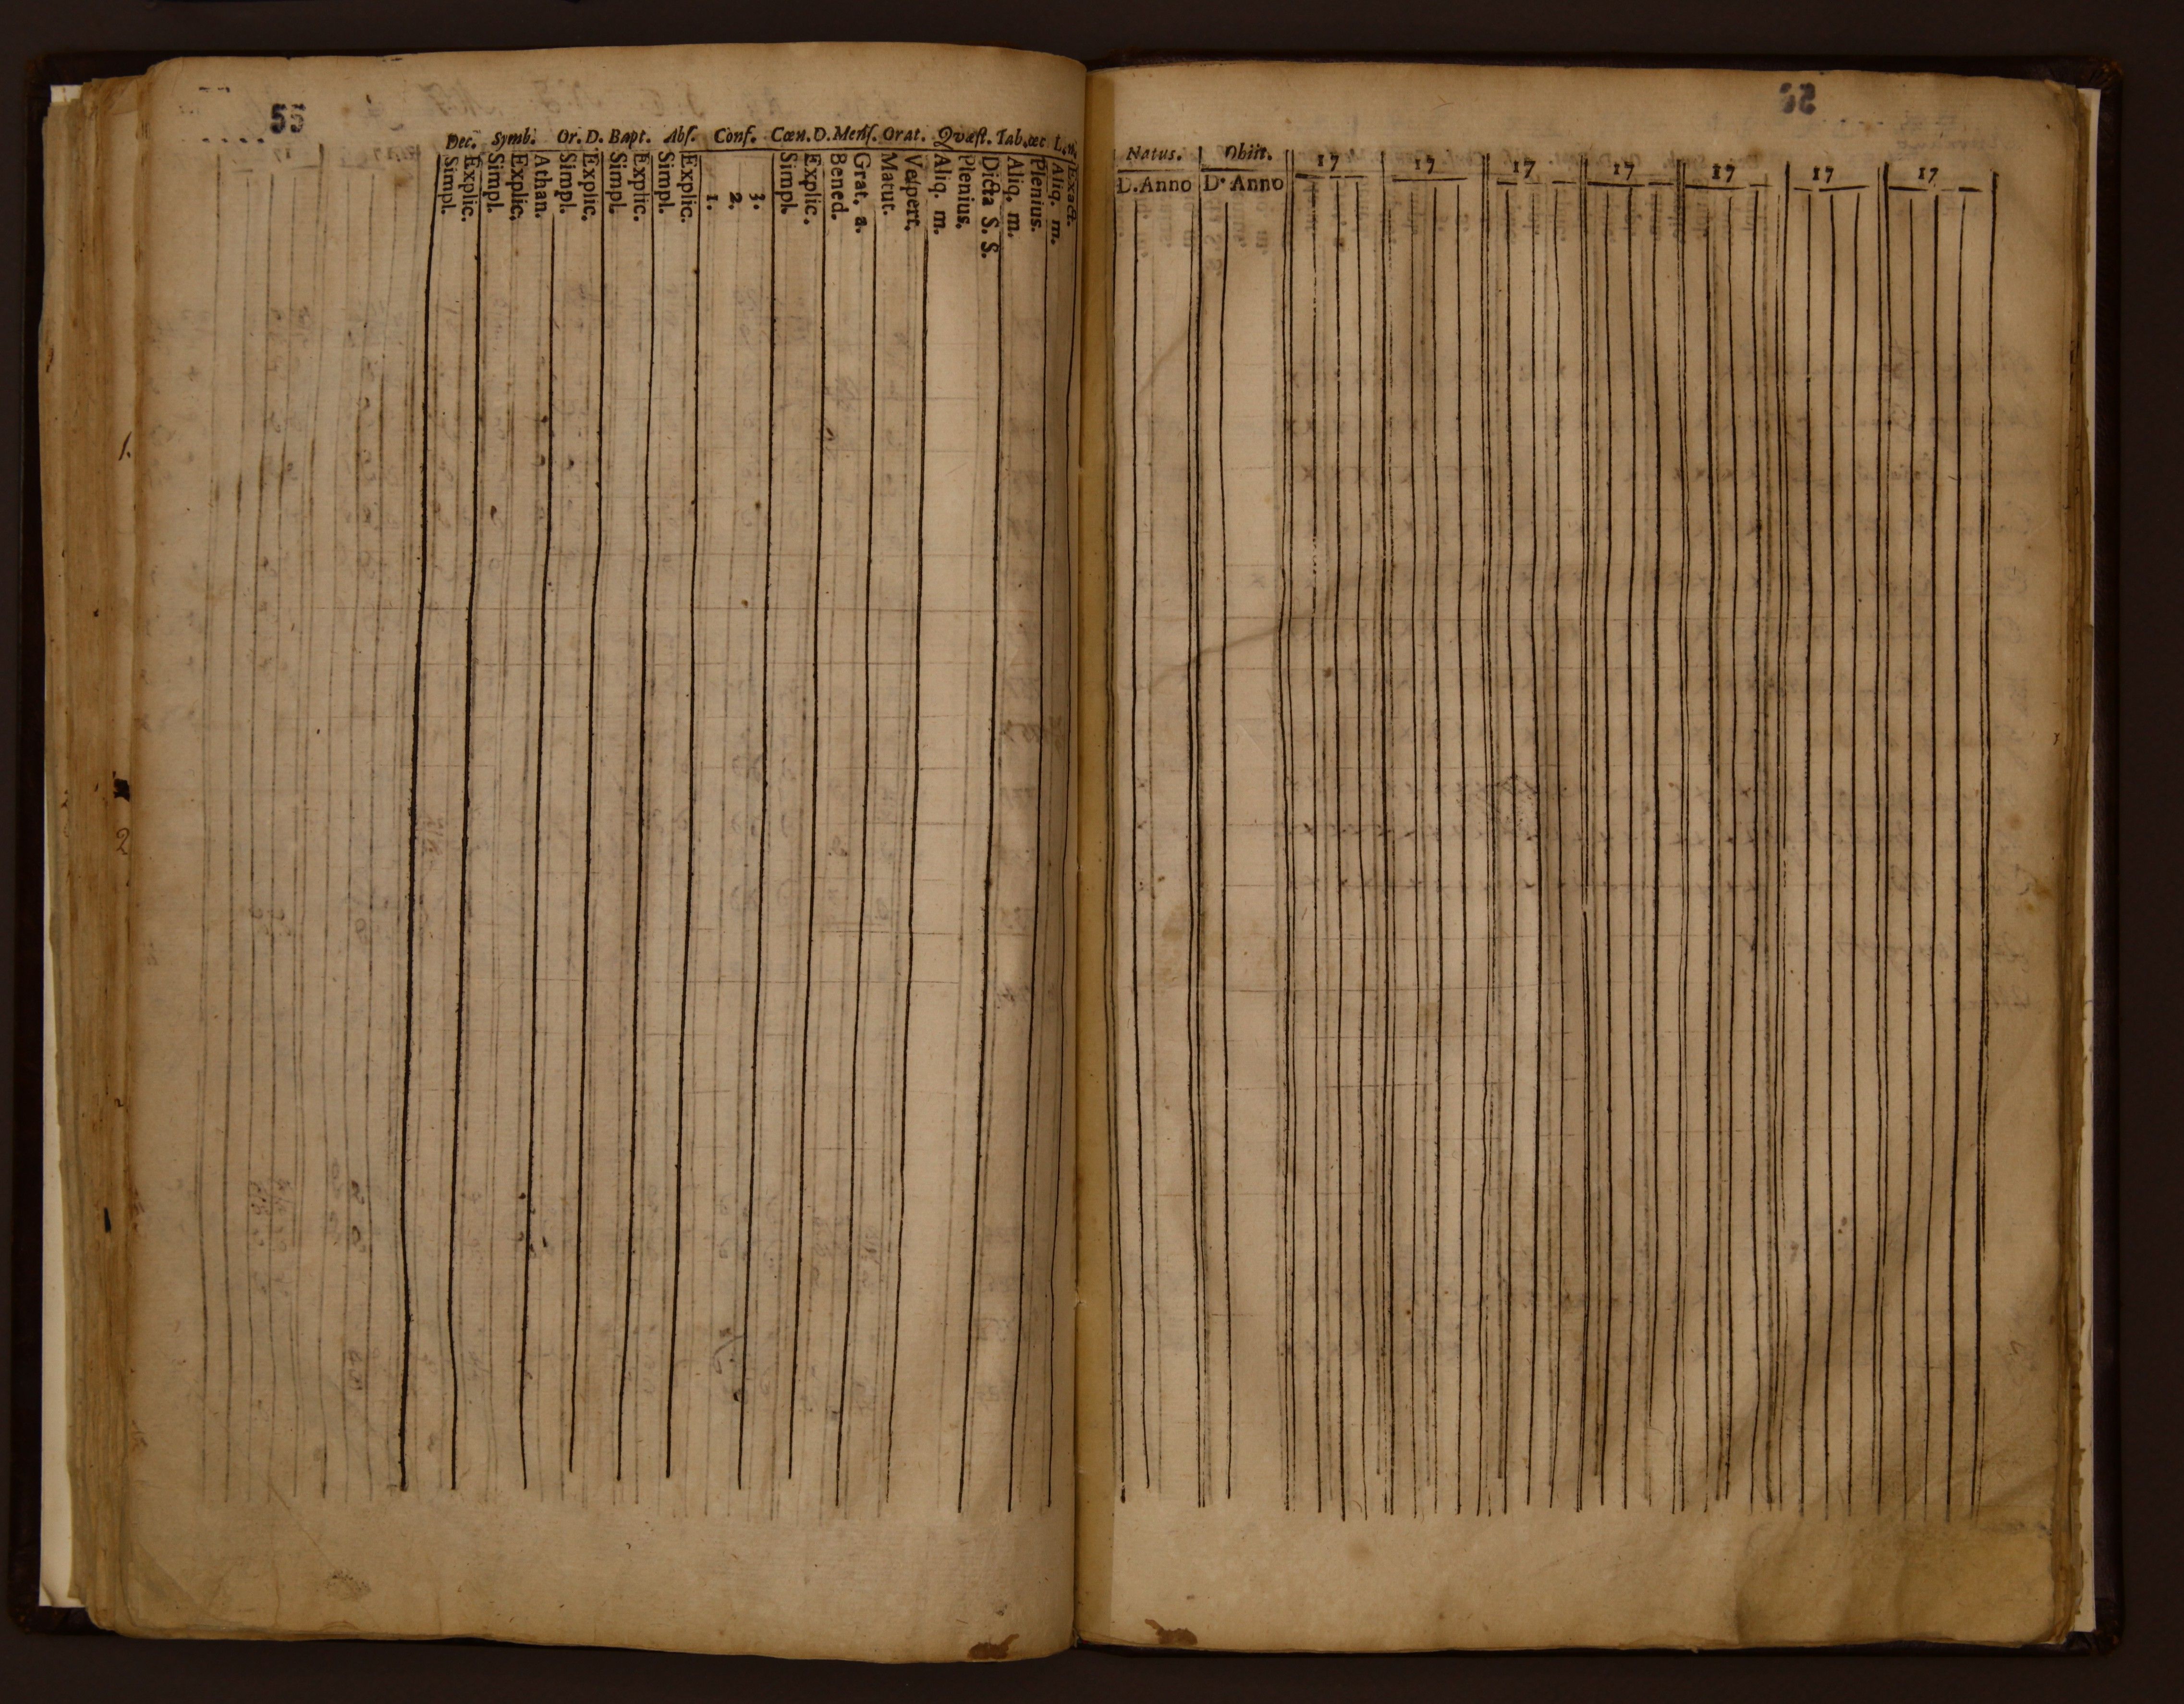 55
Dec. Symb. Or. D. Bapt. Abs. Conf. Cœn. D. Mens. Orat. Qvæst. Tab. œc L. in
Simpl.
Explic.
Simpl.
Explic.
Athan.
Simpl.
Explic.
Simpl.
Explic.
Simpl.
Explic.
1.
2.
3.
Simpl.
Explic.
Bened.
Grat. a.
Matut.
Vespert.
Aliq. m.
Plenius.
Dicta S. S.
Aliq. m.
Plenius.
Aliq. m.
Exact.
1.
2
Natus. Obiit. 17 17 17 17 17 17 17
D. Anno D. Anno